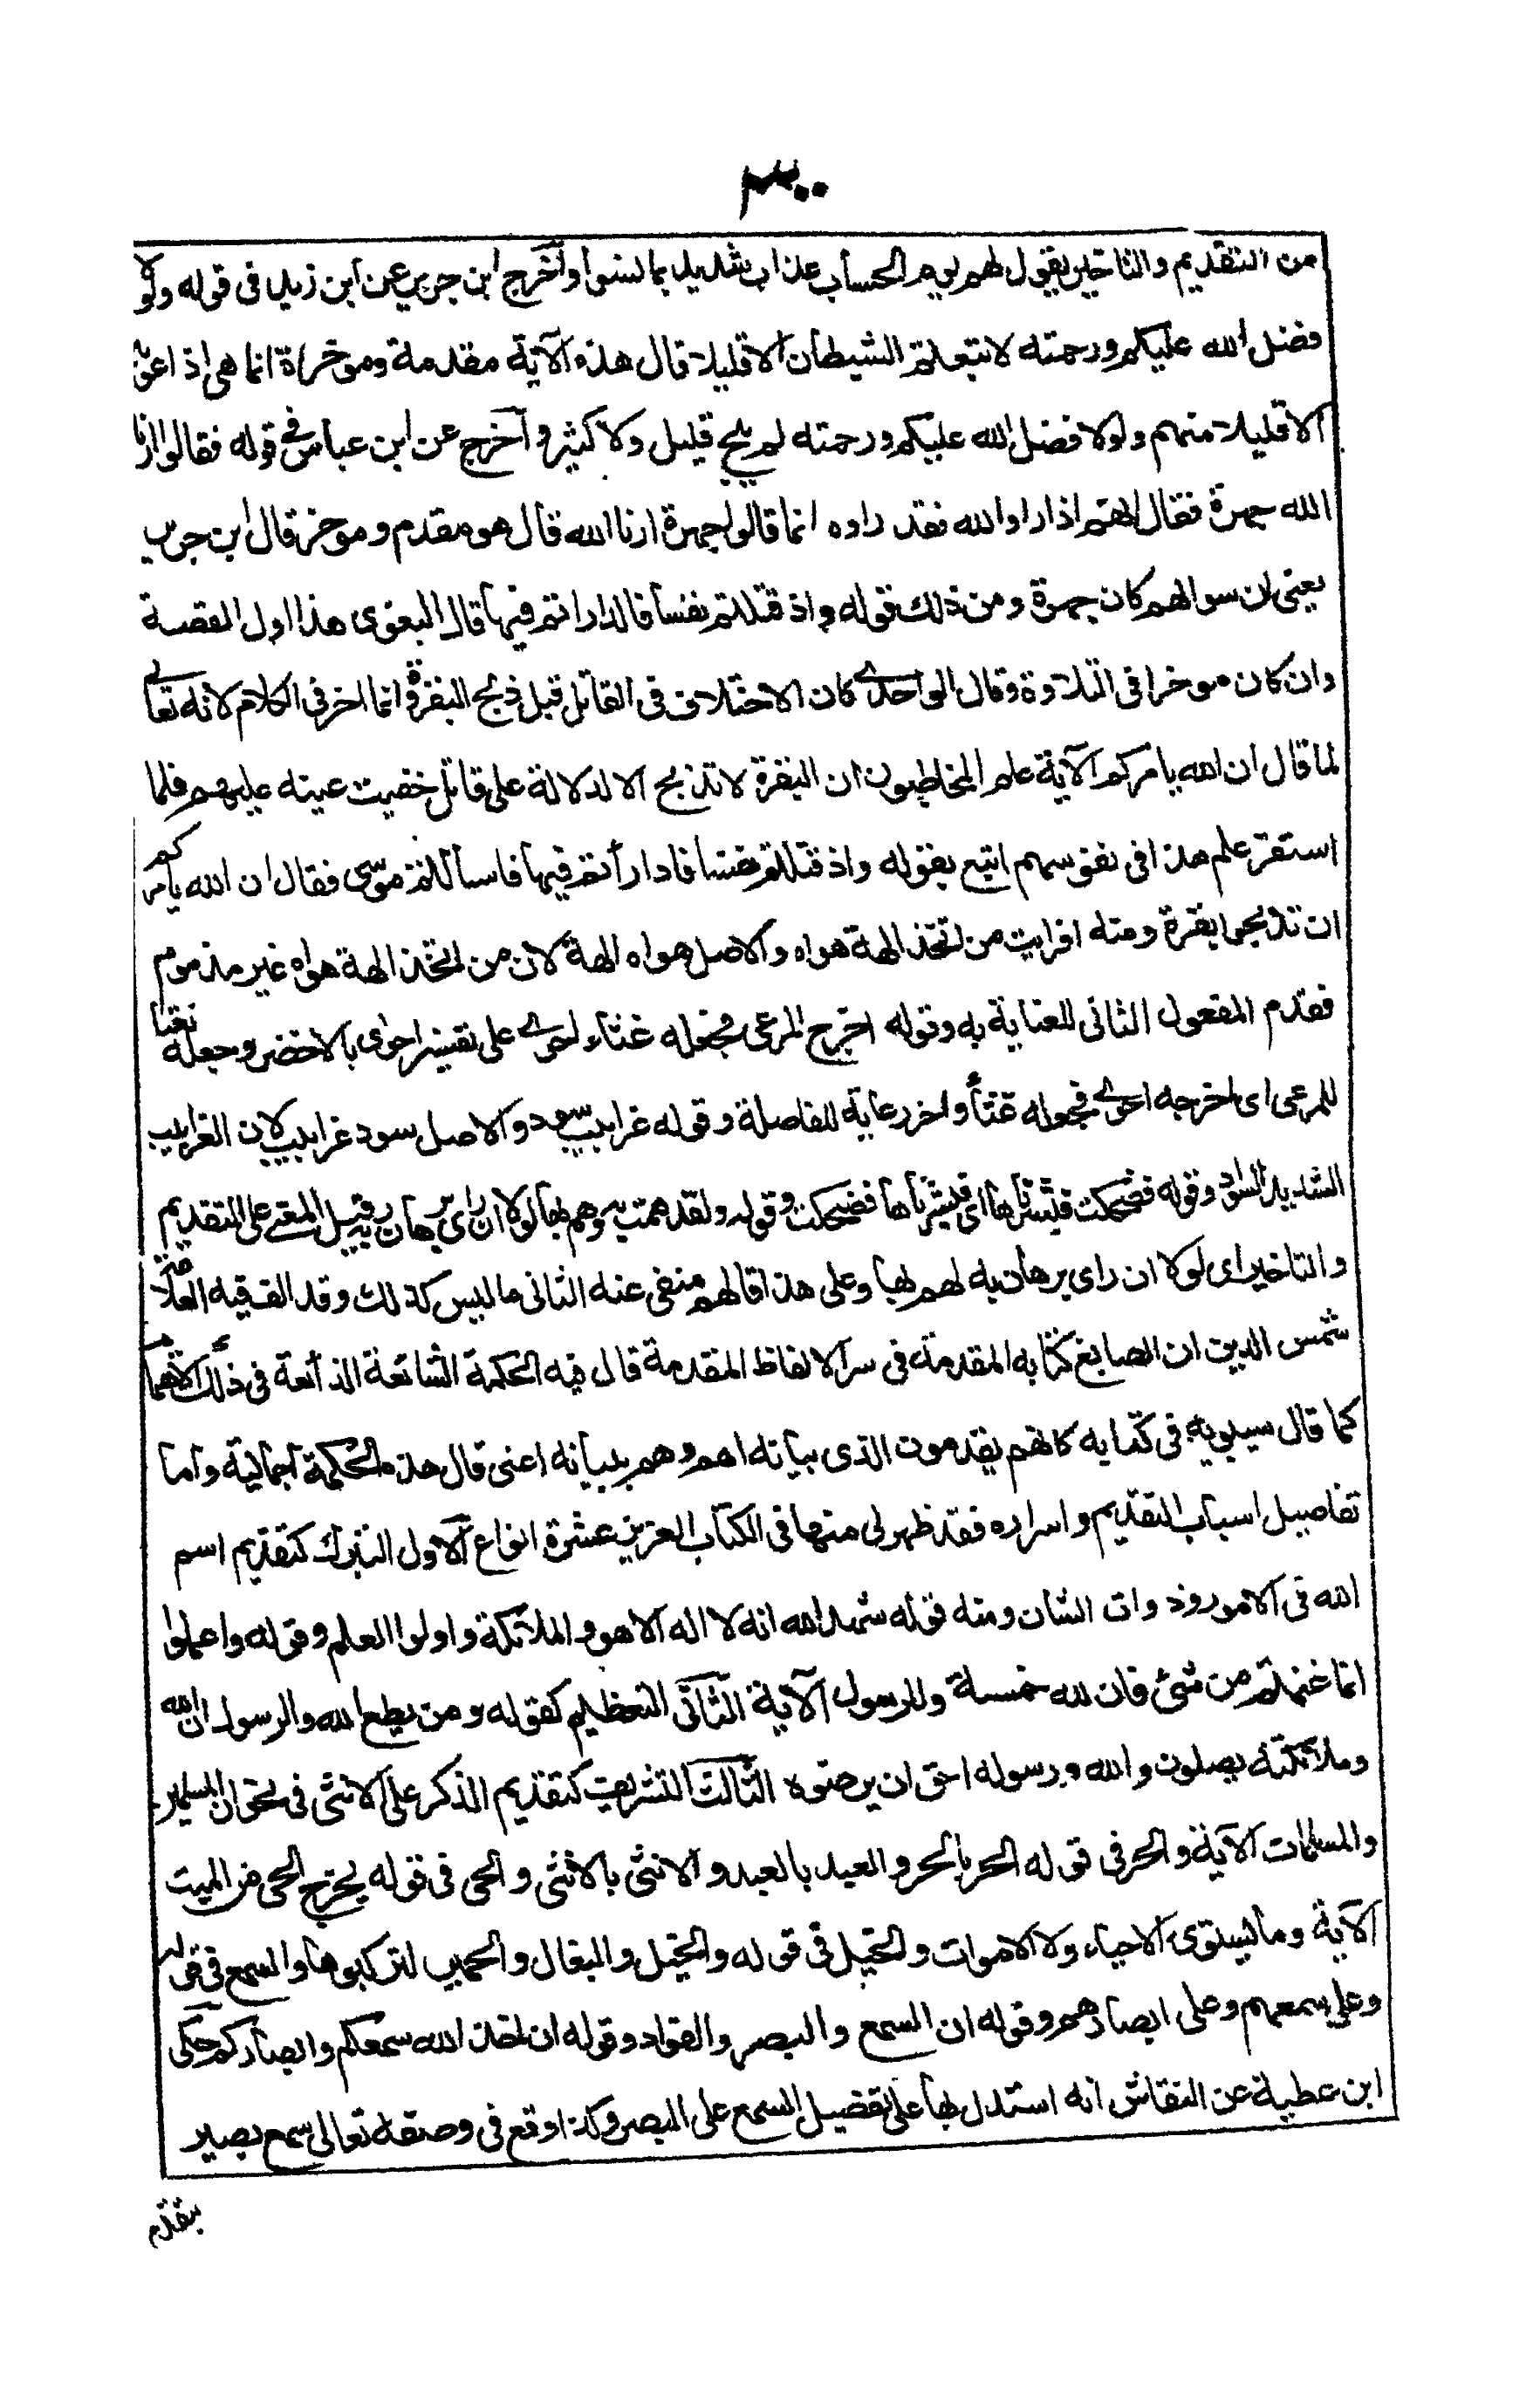 ٣٠٠
من التقديم والتاخير يقول لهم يوم الحساب عذاب شديد بما نسوا واخرج ابن جرير عن ابن زيد فى قوله ولولا
فضل الله عليكم ورحمته لاتبعتم الشيطان الا قليلا قال هذه الآية مقدمة وموخراة انما هى اذاعوا به
الا قليلا منهم ولولا فضل الله عليكم ورحمته لم ينج قليل ولا كثير و آخرج عن ابن عباس فى قوله فقالوا ارنا
الله جهرة فقال انهم اذا راوا الله فقد راوه انما قالوا جهرة ارنا الله قال هو مقدم وموخر قال ابن جرير
يعنى ان سوالهم كان جهرة ومن ذلك قوله واذ قتلتم نفسا فالداراتم فيها قال البغوى هذا اول القصة
وان كان موخرا فى التلاوة وقال الواحدى كان الاختلاف فى القاتل قبل ذبح البقرة وانما اخر فى الكلام لانه تعالى
لما قال ان الله يامركم الآية علم المخاطبون ان البقرة لا تذبح الا لدلالة على قاتل خفيت عينه عليهم فلما
استقر علم هذا فى نفوسهم اتبع بقوله واذ قتلتم نفسا فادارأتم فيها فاسألتم موسى فقال ان الله يامركم
ان تذبحوا بقرة ومنه افرايت من اتخذ الهة هواه والاصل هواه الهة لان من اتخذ الهة هواه غير مذموم
فقدم المفعول الثانى للعناية به وقوله اخرج المرعى فجعله غثاء احوى على تفسير احوى بالاخضر وجعله نعتا
للمرعى اى اخرجه احوى فجعله غثأ واخر رعاية للفاصلة وقوله غرابيب سود والاصل سود غرابيب لان الغرابيب
الشديد السواد وقوله فضحكت فبشرناها اى فبشرناها فضحكت وقوله ولقد همت به وهم بها لولا ان راى برهان ربه قيل المعنى على التقديم
والتاخير اى لولا ان راى برهان ربه لهم بها وعلى هذا فالهم منفى عنه الثانى ما ليس كذلك وقد الف فيه العلامة
شمس الدين ان الصايغ كتابه المقدمة فى سر الالفاظ المقدمة قال فيه الحكمة الشائعة الذائعة فى ذلك الاهتمام
كما قال سيبويه فى كتابه كانهم يقدمون الذى بيانه اهم وهم ببيانه اعنى قال هذه الحكمة اجمالية واما
تفاصيل اسباب التقديم واسراره فقد ظهر لى منها فى الكتاب العزيز عشرة انواع الآول التبرك كتقديم اسم
الله فى الامور ذوات الشان ومنه قوله شهد الله انه لا اله الا هو والملائكة واولوا العلم وقوله واعلموا
انما غنمتم من شئ فان لله خمسة وللرسول الآية الثانى التعظيم كقوله ومن يطع الله والرسول ان الله
وملائكته يصلون والله ورسوله احق ان يرضوه الثالث التشريف كتقديم الذكر على الانثى فى نحو ان المسلمين
والمسلمات الآية والحر فى قوله الحر بالحر والعبد بالعبد والانثى بالانثى و الحى فى قوله يخرج الحى من الميت
الآية وما يستوى الاحياء ولا الاموات والخيل فى قوله والخيل والبغال والحمير لتركبوها والسمع فى قوله
وعلى سمعهم وعلى ابصارهم وقوله ان السمع والبصر والفواد وقوله ان اخذ الله سمعكم وابصاركم حكى
ابن عطية عن النقاش انه استدل بها على تفضيل السمع على البصر وكذا وقع فى وصفه تعالى سمع بصير
بتقديم